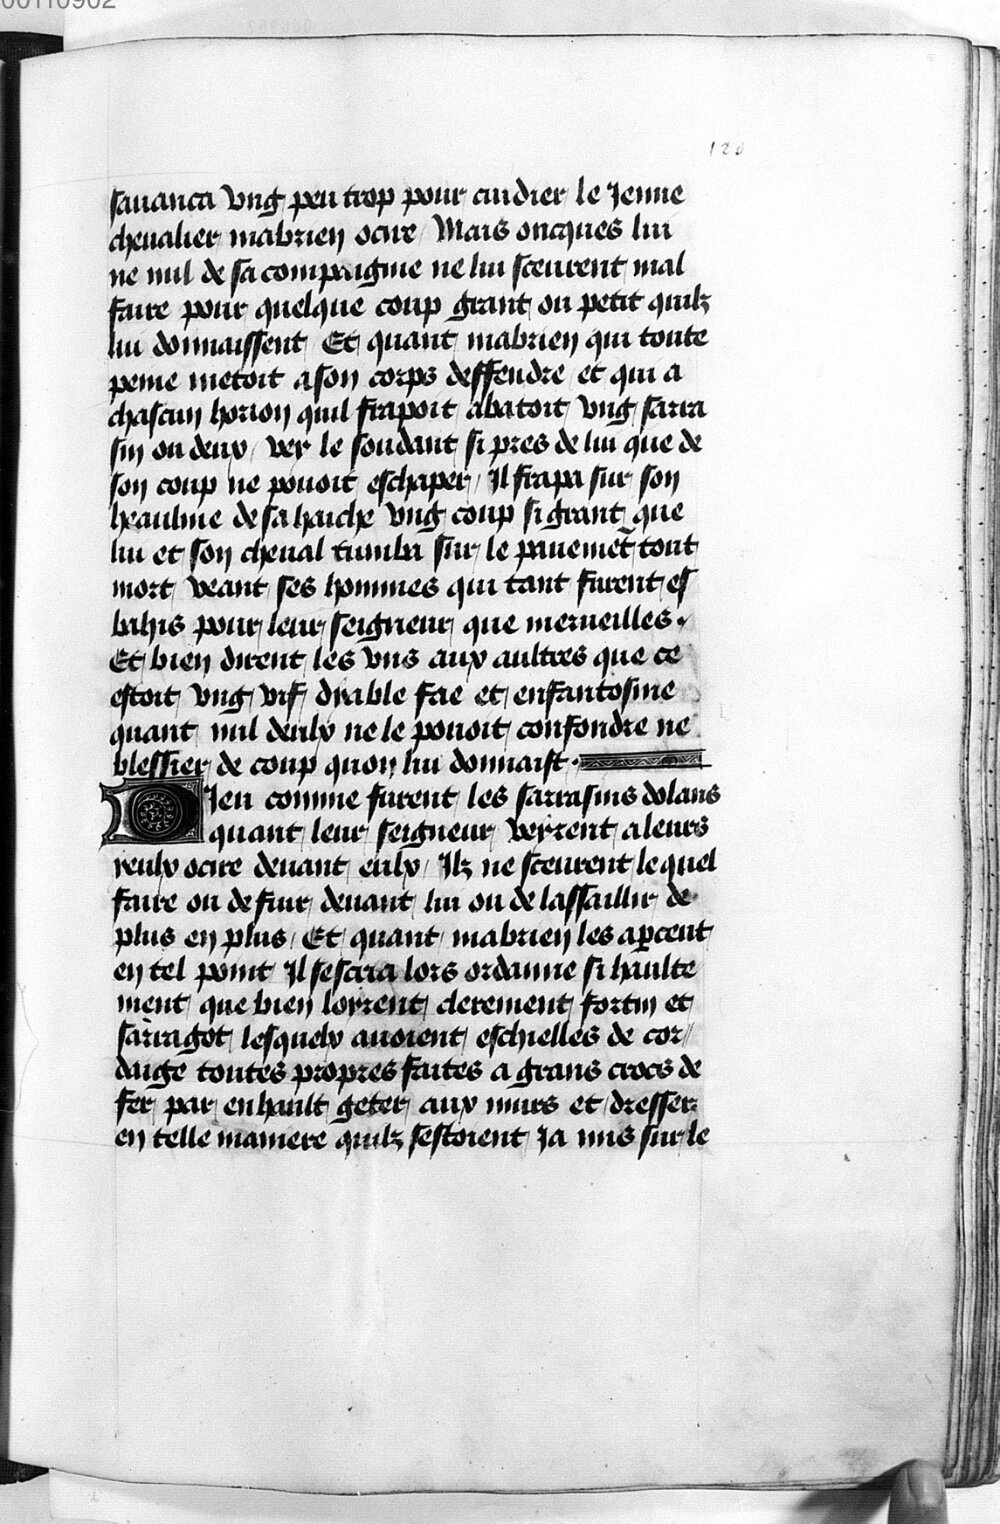 00110902
120
sauanca vng peu trop pour cuidier le Jenne
cheualier mabrien ocire Mais oncques lui
ne nul de sa compaignie ne lui sceurent mal
faire pour quelque coup grant ou petit quilz
lui donnaissent Et quant mabrien qui toute
peine metoit a son corps deffendre et qui a
chascun horion quil frapoit abatoit vng sarra
sin ou deux / vey le soudant si pres de lui que de
son coup ne pouoit eschaper / Il frapa sur son
heaulme de sa haiche vng coup si grant que
lui et son cheual tumba sur le pauemēt tout
mort / veant ses hommes qui tant furent es
bahis pour leur seigneur que merueilles.
Et bien dirent les vns aux aultres que ce
estoit vng vif dyable fae et enfantosme
quant nul deulx ne le pouoit confondre ne
blessier de coup quon lui donnaist.
Dieu comme furent les sarrasins dolans
quant leur seigneur veyrent a leurs
yeulx ocire deuant eulx / Ilz ne sceurent lequel
faire ou de fuir deuant lui ou de lassaillir de
plus en plus / Et quant mabrien les apceut
en tel point Il sescria lors ordanne si haulte
ment que bien loyrent clerement fortin et
sarragot lesquelx auoient eschielles de cor//
daige toutes propres faites a grans crocs de
fer par en hault geter aux murs et dresser
en telle maniere quilz sestoient Ja mis sur le